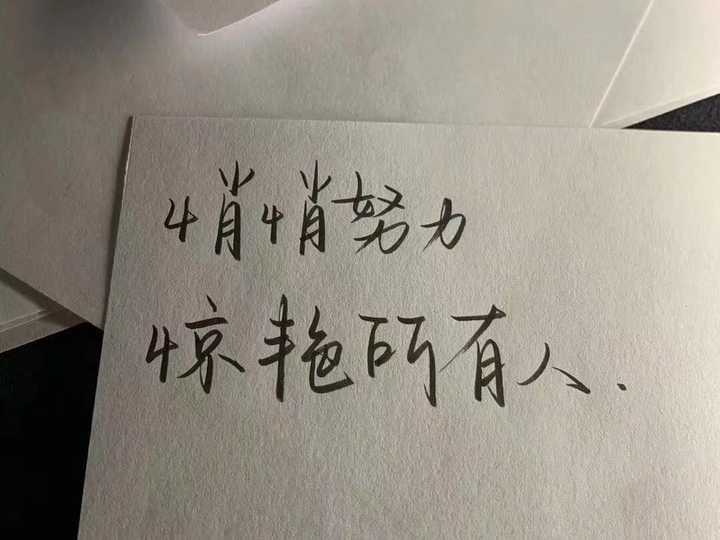 悄悄努力
惊艳所有人.